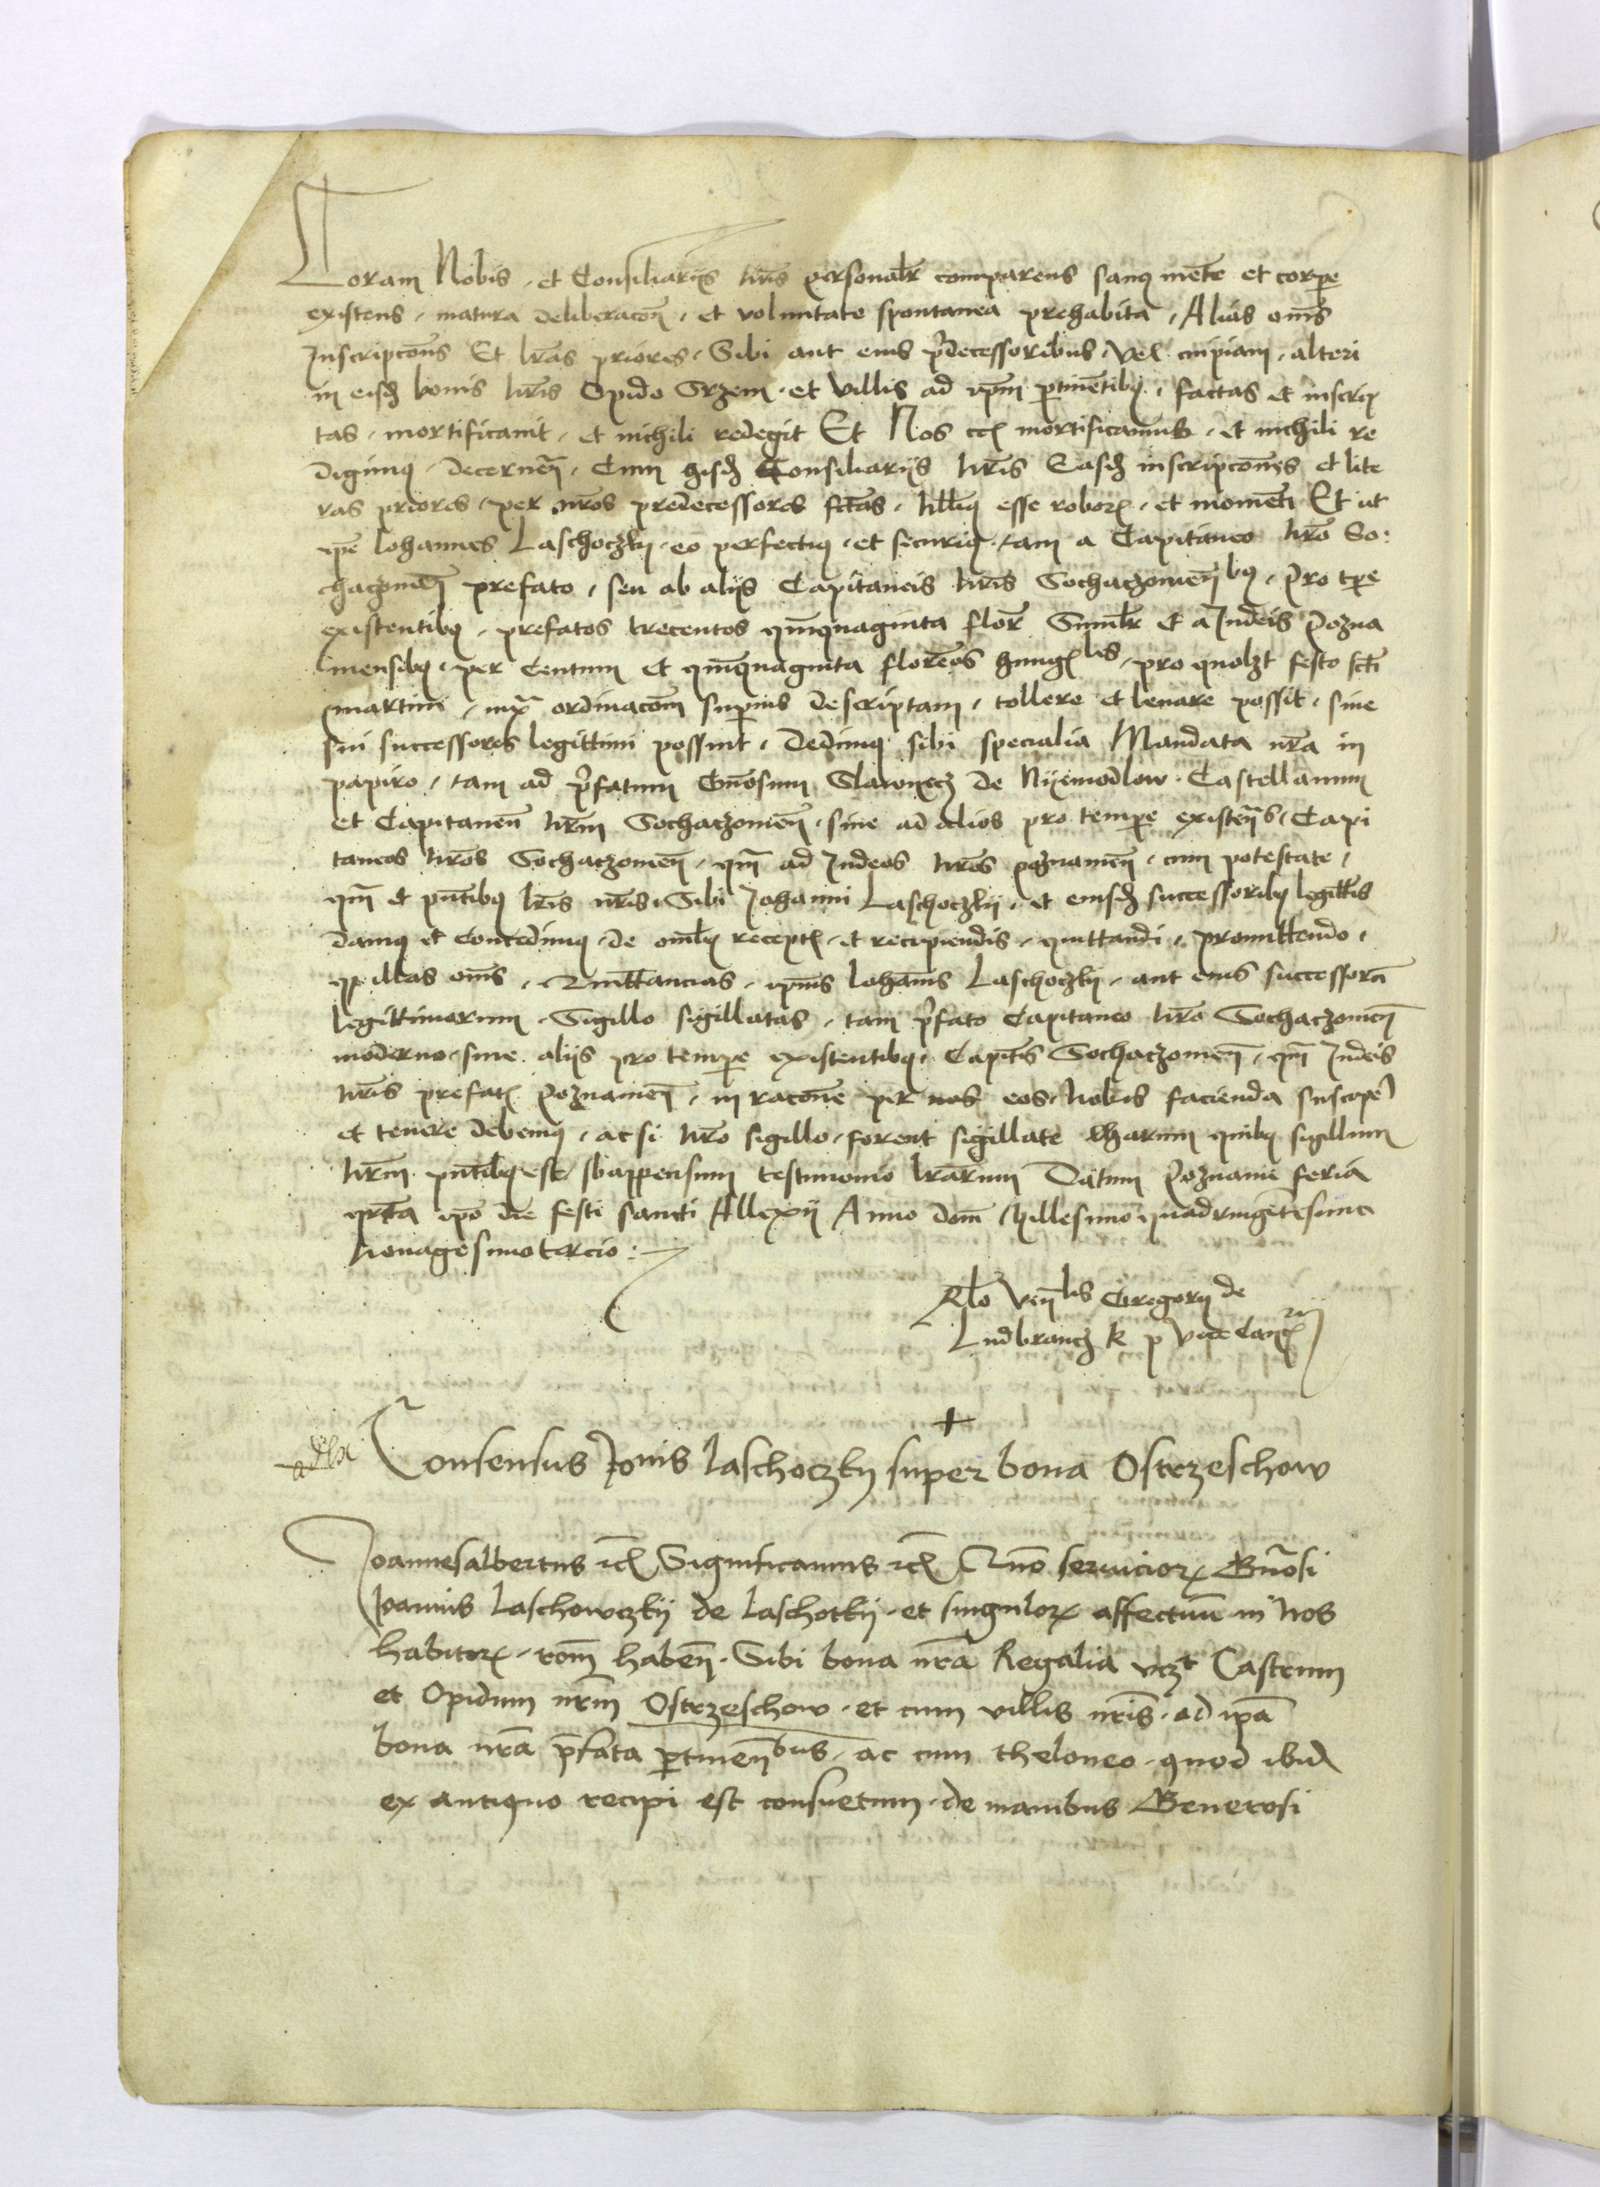 Coram Nobis et Consiliariis nr̄is personalr̄ comparens sanus mēte et corpe
existens, matura deliberacōn, et voluntate spontanea prehabita, Alias om̄s
Inscripcōns Et lrās priores, Sibi aut eius p̄decessoribus, vel cuipiam alteri
in eisdē bonis nr̄is Opido Srzem et villis ad ip̄m ptinētibq, factas et inscrip
tas, mortificauit, et nichili redegit Et Nos etc mortificauimus, et nichili re
digimus decernen̄, Cum hisdē Consiliariis nr̄is Easdē inscripcōnes et lite
ras priores, per nr̄os predecessores fctās, nullius esse robor, et momēti Et ut
ip̄e Iohannes Laschoczky eo perfectius et securius tam a Capitaneo nr̄o So:
chaczouien̄ prefato, seu ab aliis Capitaneis nr̄is Sochaczouien̄bq, pro tpe
existentibq, prefatos trecentos qm̄quaginta flor̄ Similr̄ et a Iudeis Pozna
niensibq, per Centum et qm̄quaginta florēos hungles, pro quolzt festo sctī
martini, iux̄ ordinacōm supius descriptam, tollere et leuare possit, siue
sui successores legittimi possint, Dedimus sibi specialia Mandata nr̄a in
papiro, tam ad p̄fatum Gn̄osum Slawyecz de Nyemodlow Castellanum
et Capitaneū nr̄m Sochaczouien̄, siue ad alios pro tempe existen̄s, Capi
taneos nr̄os Sochaczouien̄, qm̄ ad Iudeos nr̄os poznanien̄, cum potestate,
qm̄ et pn̄tibq lr̄is nr̄is Sibi Iohanni Laschoczky, et eiusdē successoribq legittīs
damus et Concedimus de om̄ibq recept et recipiendis, quittandi, promittendo,
qz illas om̄s, Quittancias, ip̄ius Iohānis Laschoczky, aut eius successorū
legittimorum Sigillo sigillatas, tam p̄fato Capitaneo nr̄o Sochaczouien̄
moderno siue aliis pro tempe existentibq, Capitīs Sochaczouien̄, qm̄ Iudeis
nr̄is prefat Poznanien̄, in racōne per nos eos nobis facienda suscipe
et tenere debemus, ac si nr̄o sigillo, forent sigillate harum quibq sigillum
nr̄m pn̄tibq est sbappensum testimonio lr̄arum Datum Poznanie feria
qrta ip̄o die festi sancti Allexii Anno dom̄ Millesimo quadringētesimo
Nonagesimotercio:
Rlō Ven̄lis Gregorii de
Ludbrancz R p Vice Canc
Consensus Joīnis Laschoczky super bona Ostrzeschow
Joannesalbertus etc Significamus etc Quō seruicior Gn̄osi
Joannis Laschowczky de Laschotky et singulor affectuū in nos
habitor, rōm haben̄ Sibi bona nr̄a Regalia vczt Castrum
et Opidum nr̄m Ostrzeschow et cum villis nr̄is ad ip̄a
bona nr̄a p̄fata ptinen̄bus, ac cum theloneo quod ibid
ex antiquo recipi est consuetum de manibus Generosi